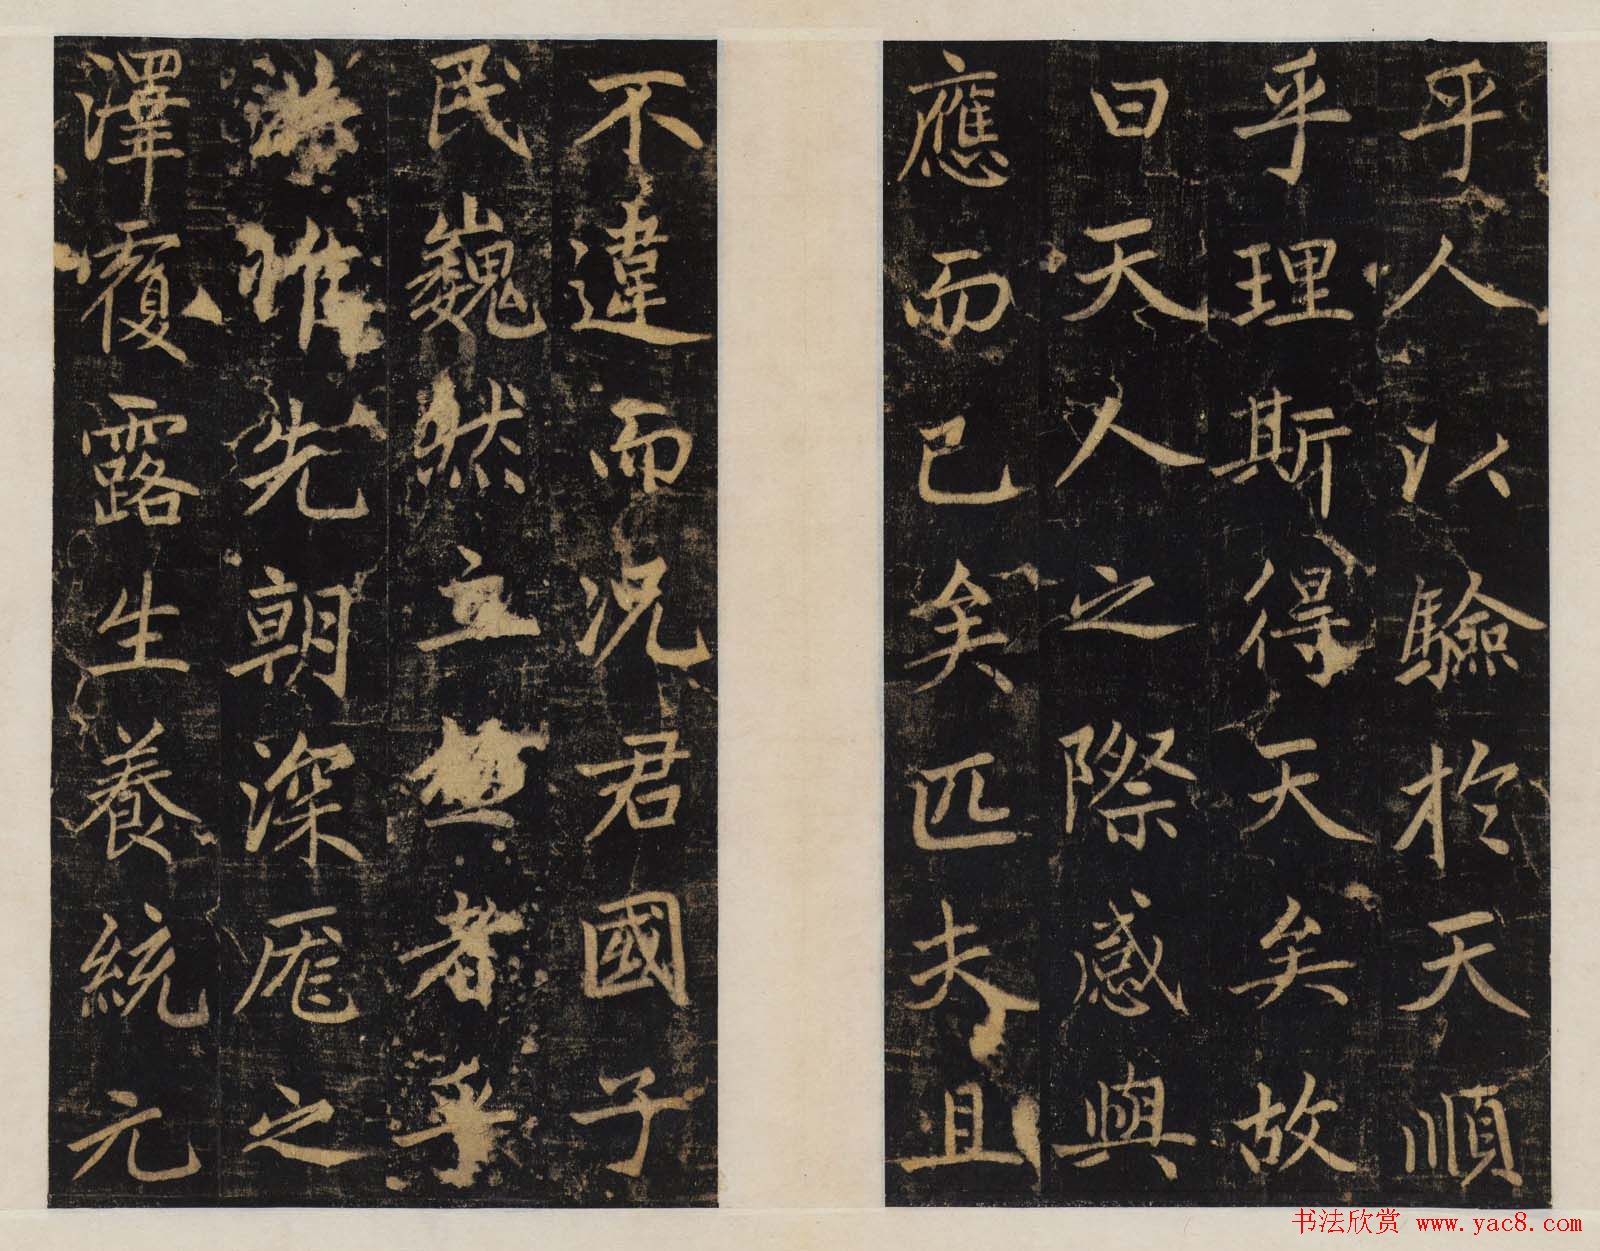 乎人以驗於天順
乎理斯得天矣故
曰天人之際感與
應而已矣匹夫且
不違而況君國子
民巍然立極者乎
洪惟先朝深厖之
澤覆露生養統元
书法欣赏 www.yac8.com